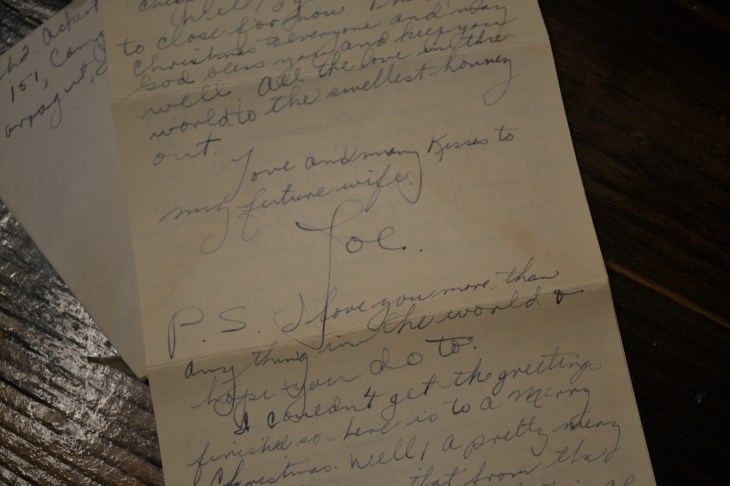 Well, I
to close for now.
Christmas to everyone and may
God bless you and keep you
well. All the love in the
world to the swellest honney
out.
Love and many Kisses to
my future wife.
Joe.
P.S. I love you more than
any thing in the world &
hope you do to.
I couldn't get the greetings
finished so here is to a Merry
Christmas. Well, a pretty merry
that from the
151, Camp